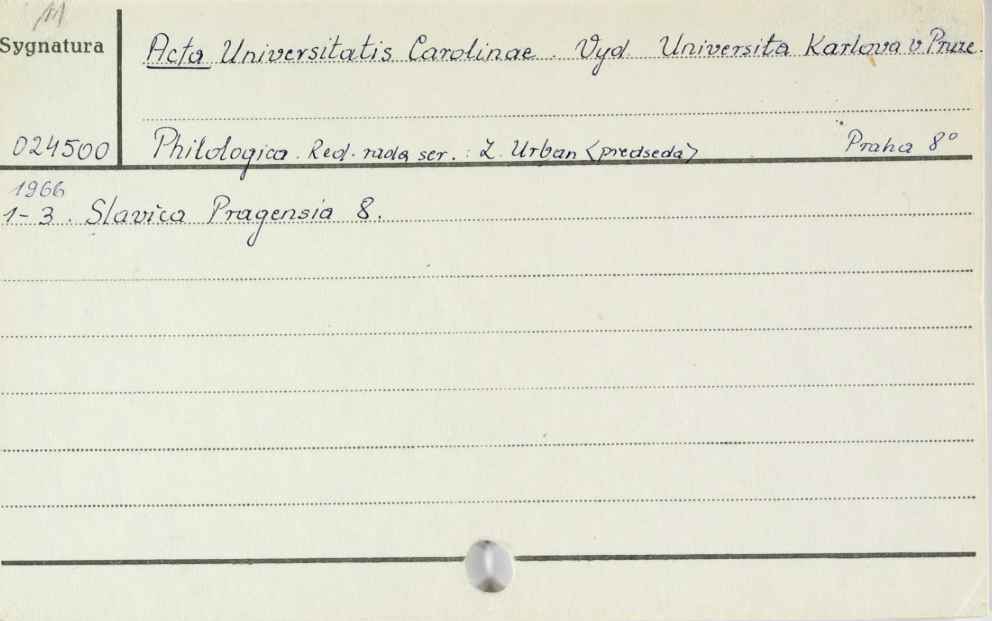 Sygnatura
Acta Universitatis Carolinae. Vyd. Universita Karlova v Praze.
024500
Philologica. Red. rada ser.: Z. Urban <predseda> Praha 8°
1966
1-3. Slavica Pragensia 8.